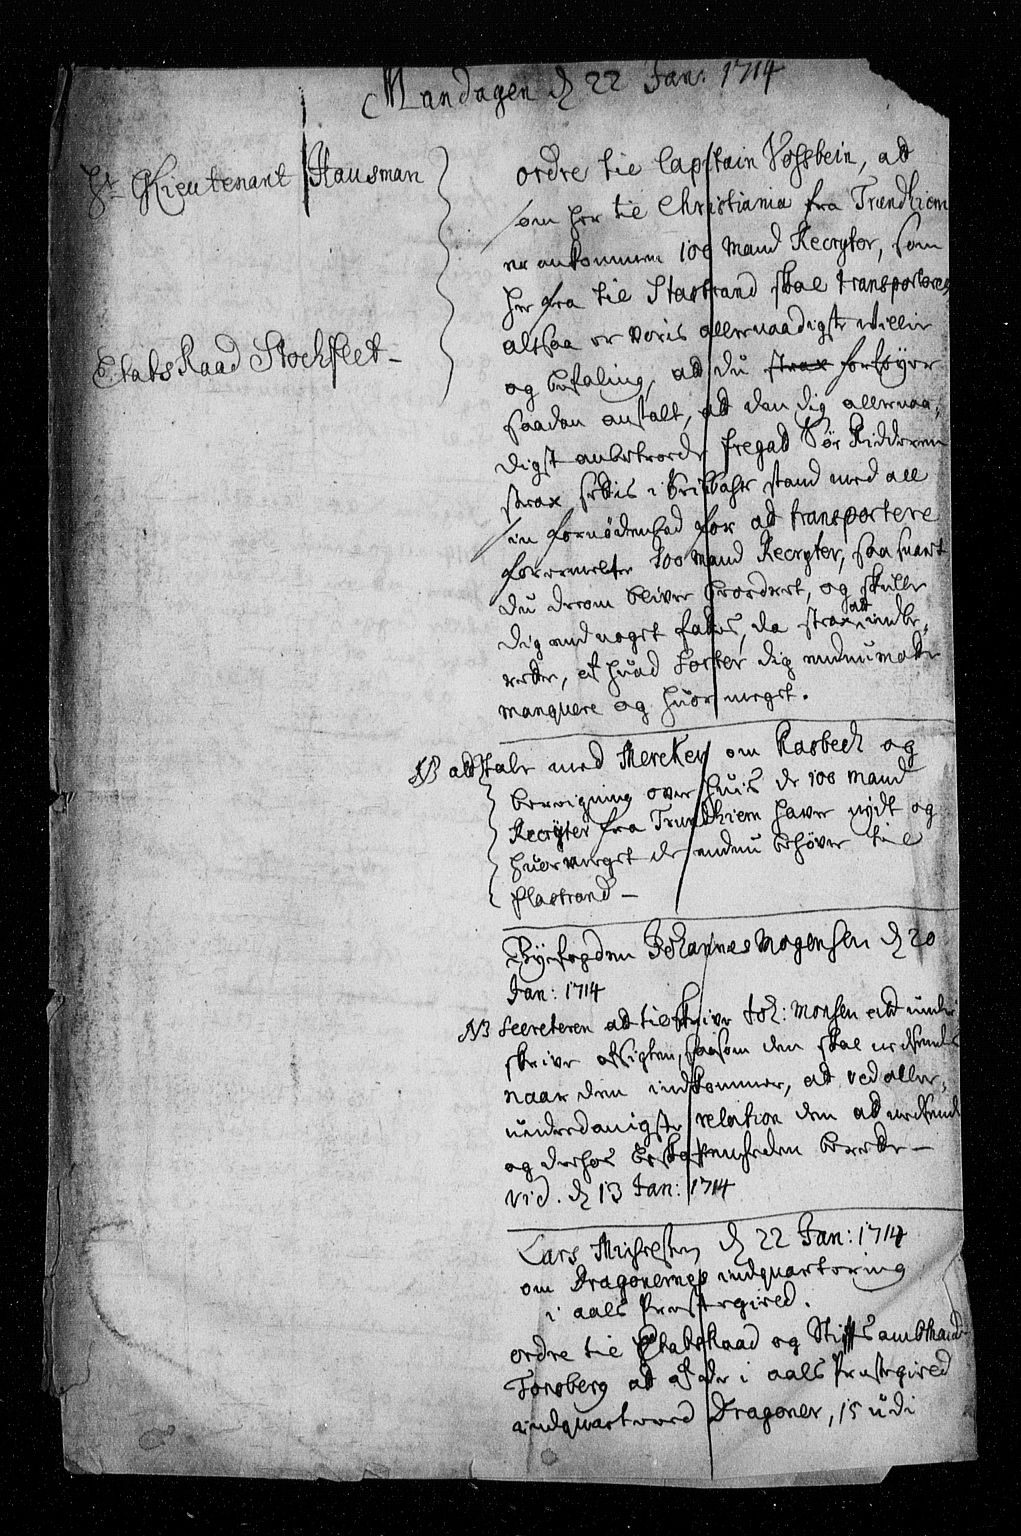 Mandagen d 22 Jan: 1714
Hr GLieutenant Hausman
Etats Raad Stochflet –
ordre til Captain Vosbein, at
som her til Christiania fra Trundhiem
er ankommen 100 Mand Recryter, som
her fra til Stastrand skal transporteres
altsaa er voris allernaadigste villie
og befaling, at du strax forføyer
saadan anstalt, at den dig allernaa,
digst anbetroede fregat Sør Ridderen
strax settis i seilbahr stand med all
sin fornødenhed for at transportere
forermelte 100 Mand Recryter, saa snart
du derom bliver beordret, og skulle
dig end noget fattes, da strax at indbe,
rette, et huad Sorter dig endnu maatte
manquere og huor meget.
NB at tale med Mercker om Rasbech og
beregning over huis de 100 Mand
Recryter fra Trundhiem haver nydt og
huor meget de endnu behøver til
Flastrand –
Byefogden Johannes Mogensen d 20
Jan: 1714
NB Secreteren at tilskrive Joh: Monsen at under
skrive afsigten, saasom den skal nedsendes
naar den indkommer, at ved aller,
underdanigste relation dem at nedsende
og derhos beskaffenheden berette –
vid. d 13 Jan: 1714
Lars Michelsen d 22 Jan: 1714
om Dragonernes indquartering
i aals Prestegield.
ordre til Etatsraad og Stiftsambtmand
Tonsberg at af de i aals Prestegield
indquarterede Dragoner, 15 udi